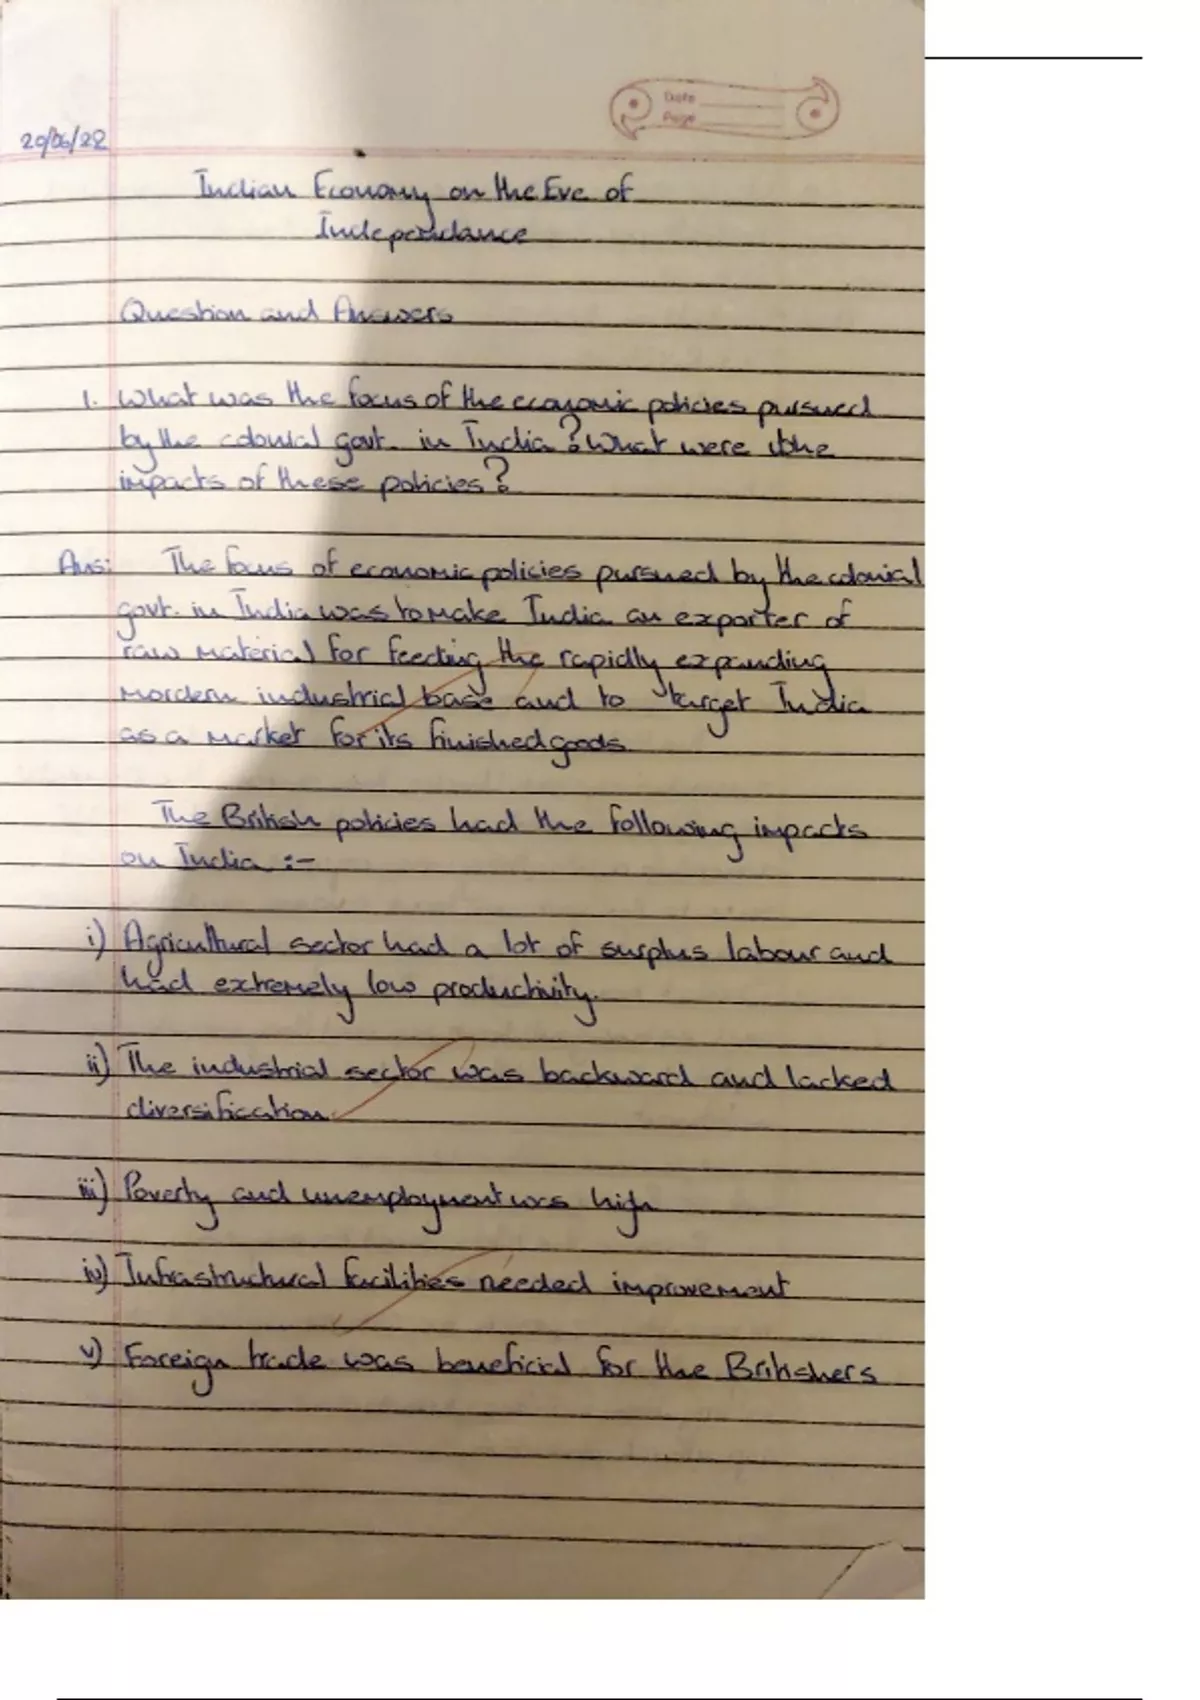 Date
Page
20/06/22
Indian Economy on the Eve of
Independance
Question and Answers
1. What was the focus of the economic policies pursued
by the colonial govt. in India? What were the
impacts of these policies?
Ans: The focus of economic policies pursued by the colonial
govt. in India was to make India an exporter of
raw material for feeding the rapidly expanding
mordern industrial base and to target India
as a market for its finished goods
The British policies had the following impacts
on India :-
i) Agricultural sector had a lot of surplus labour and
had extremely low productivity.
ii) The industrial sector was backward and lacked
diversification.
iii) Poverty and unemployment was high
iv) Infrastructural facilities needed improvement
v) Foreign trade was beneficial for the Britishers